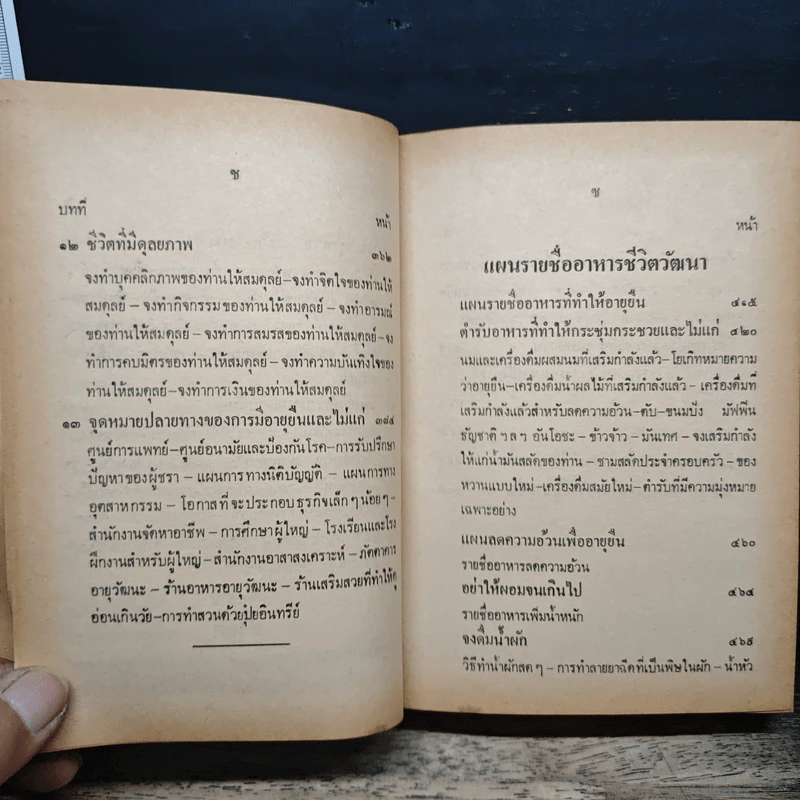 ช
บทที่
หน้า
๑๒ ชีวิตที่มีดุลยภาพ
๓๖๒
จงทำบุคคลิกภาพของท่านให้สมดุลย์–จงทำจิตใจของท่านให้
สมดุลย์ – จงทำกิจกรรมของท่านให้สมดุลย์ – จงทำอารมณ์
ของท่านให้สมดุลย์ – จงทำการสมรสของท่านให้สมดุลย์–จง
ทำการคบมิตรของท่านให้สมดุลย์ – จงทำความบันเทิงใจของ
ท่านให้สมดุลย์–จงทำการเงินของท่านให้สมดุลย์
๑๓ จุดหมายปลายทางของการมีอายุยืนและไม่แก่ ๓๙๔
ศูนย์การแพทย์–ศูนย์อนามัยและป้องกันโรค–การรับปรึกษา
ปัญหาของผู้ชรา – แผนการทางนิติบัญญัติ – แผนการทาง
อุตสาหกรรม – โอกาสที่จะประกอบธุรกิจเล็กๆ น้อยๆ–
สำนักงานจัดหาอาชีพ – การศึกษาผู้ใหญ่ – โรงเรียนและโรง
ฝึกงานสำหรับผู้ใหญ่–สำนักงานอาสาสงเคราะห์ – ภัตตาคาร
อายุวัฒนะ – ร้านอาหารอายุวัฒนะ – ร้านเสริมสวยที่ทำให้ดู
อ่อนเกินวัย–การทำสวนด้วยปุ๋ยอินทรีย์
ซ
หน้า
แผนรายชื่ออาหารชีวิตวัฒนา
แผนรายชื่ออาหารที่ทำให้อายุยืน ๔๑๕
ตำรับอาหารที่ทำให้กระชุ่มกระชวยและไม่แก่ ๔๒๐
นมและเครื่องดื่มผสมนมที่เสริมกำลังแล้ว–โยเกิทหมายความ
ว่าอายุยืน–เครื่องดื่มน้ำผลไม้ที่เสริมกำลังแล้ว – เครื่องดื่มที่
เสริมกำลังแล้วสำหรับลดความอ้วน –ตับ –ขนมปัง มัฟฟีน
ธัญชาติ ฯลฯ อันโอชะ – ข้าวจ้าว – มันเทศ – จงเสริมกำลัง
ให้แก่น้ำมันสลัดของท่าน – ชามสลัดประจำครอบครัว – ของ
หวานแบบใหม่–เครื่องดื่มสมัยใหม่–ตำรับที่มีความมุ่งหมาย
เฉพาะอย่าง
แผนลดความอ้วนเพื่ออายุยืน ๔๖๐
รายชื่ออาหารลดความอ้วน
อย่าให้ผอมจนเกินไป ๔๖๔
รายชื่ออาหารเพิ่มน้ำหนัก
จงดื่มน้ำผัก ๔๖๙
วิธีทำน้ำผักสดๆ – การทำลายยาฉีดที่เป็นพิษในผัก – น้ำหัว